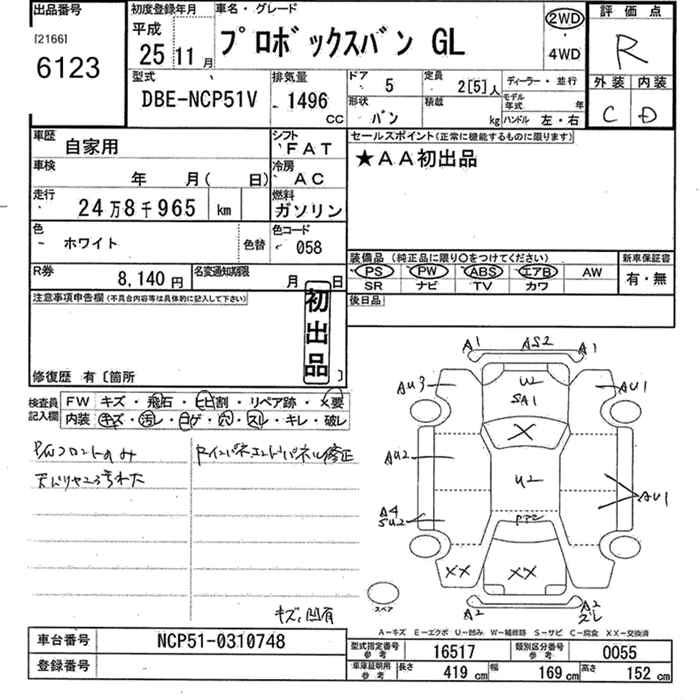 出品番号
[2166]
6123
初度登録年月
平成
25 11月
車名・グレード
プロボックスバン GL
2WD
・
4WD
評価点
R
外装 内装
C D
型式
DBE-NCP51V
排気量
1496
CC
ドア
5
定員
2[5]人
形状
バン
積載
kg
ディーラー・並行
モデル
年式
年
ハンドル 左・右
車歴
自家用
シフト
FAT
車検
年 月( 日)
冷房
AC
走行
24万8千965 km
燃料
ガソリン
色
ホワイト
色替
色コード
058
R券
8,140円
名変通知期限
月 日
セールスポイント(正常に機能するものに限ります)
★AA初出品
装備品(純正品に限り○をつけてください)
PS PW ABS エアB AW
SR ナビ TV カワ
新車保証書
有・無
後日品
注意事項申告欄(不具合内容等は具体的に記入して下さい)
初出品
修復歴 有〔箇所 〕
検査員
記入欄
FW キズ・飛石・ヒビ割・リペア跡・✕要
内装 キズ・汚レ・コゲ・穴・スレ・キレ・破レ
P/Wフロントのみ
天ドリヤ2ろ汚れた
Rインパネエンドパネル修正
キズ、凹有
A1 AS2 A1
AU3 W AU1
SA1
X
AU2 U2
AU1
A4
SU2
XX XX
A2 A2
スペア
A-キズ E-エクボ U-凹み W-補修跡 S-サビ C-腐食 XX-交換済
車台番号 NCP51-0310748
登録番号
型式指定番号
参考
16517
類別区分番号
参考
0055
車庫証明用
参考
長さ 419 cm 幅 169 cm 高さ 152 cm